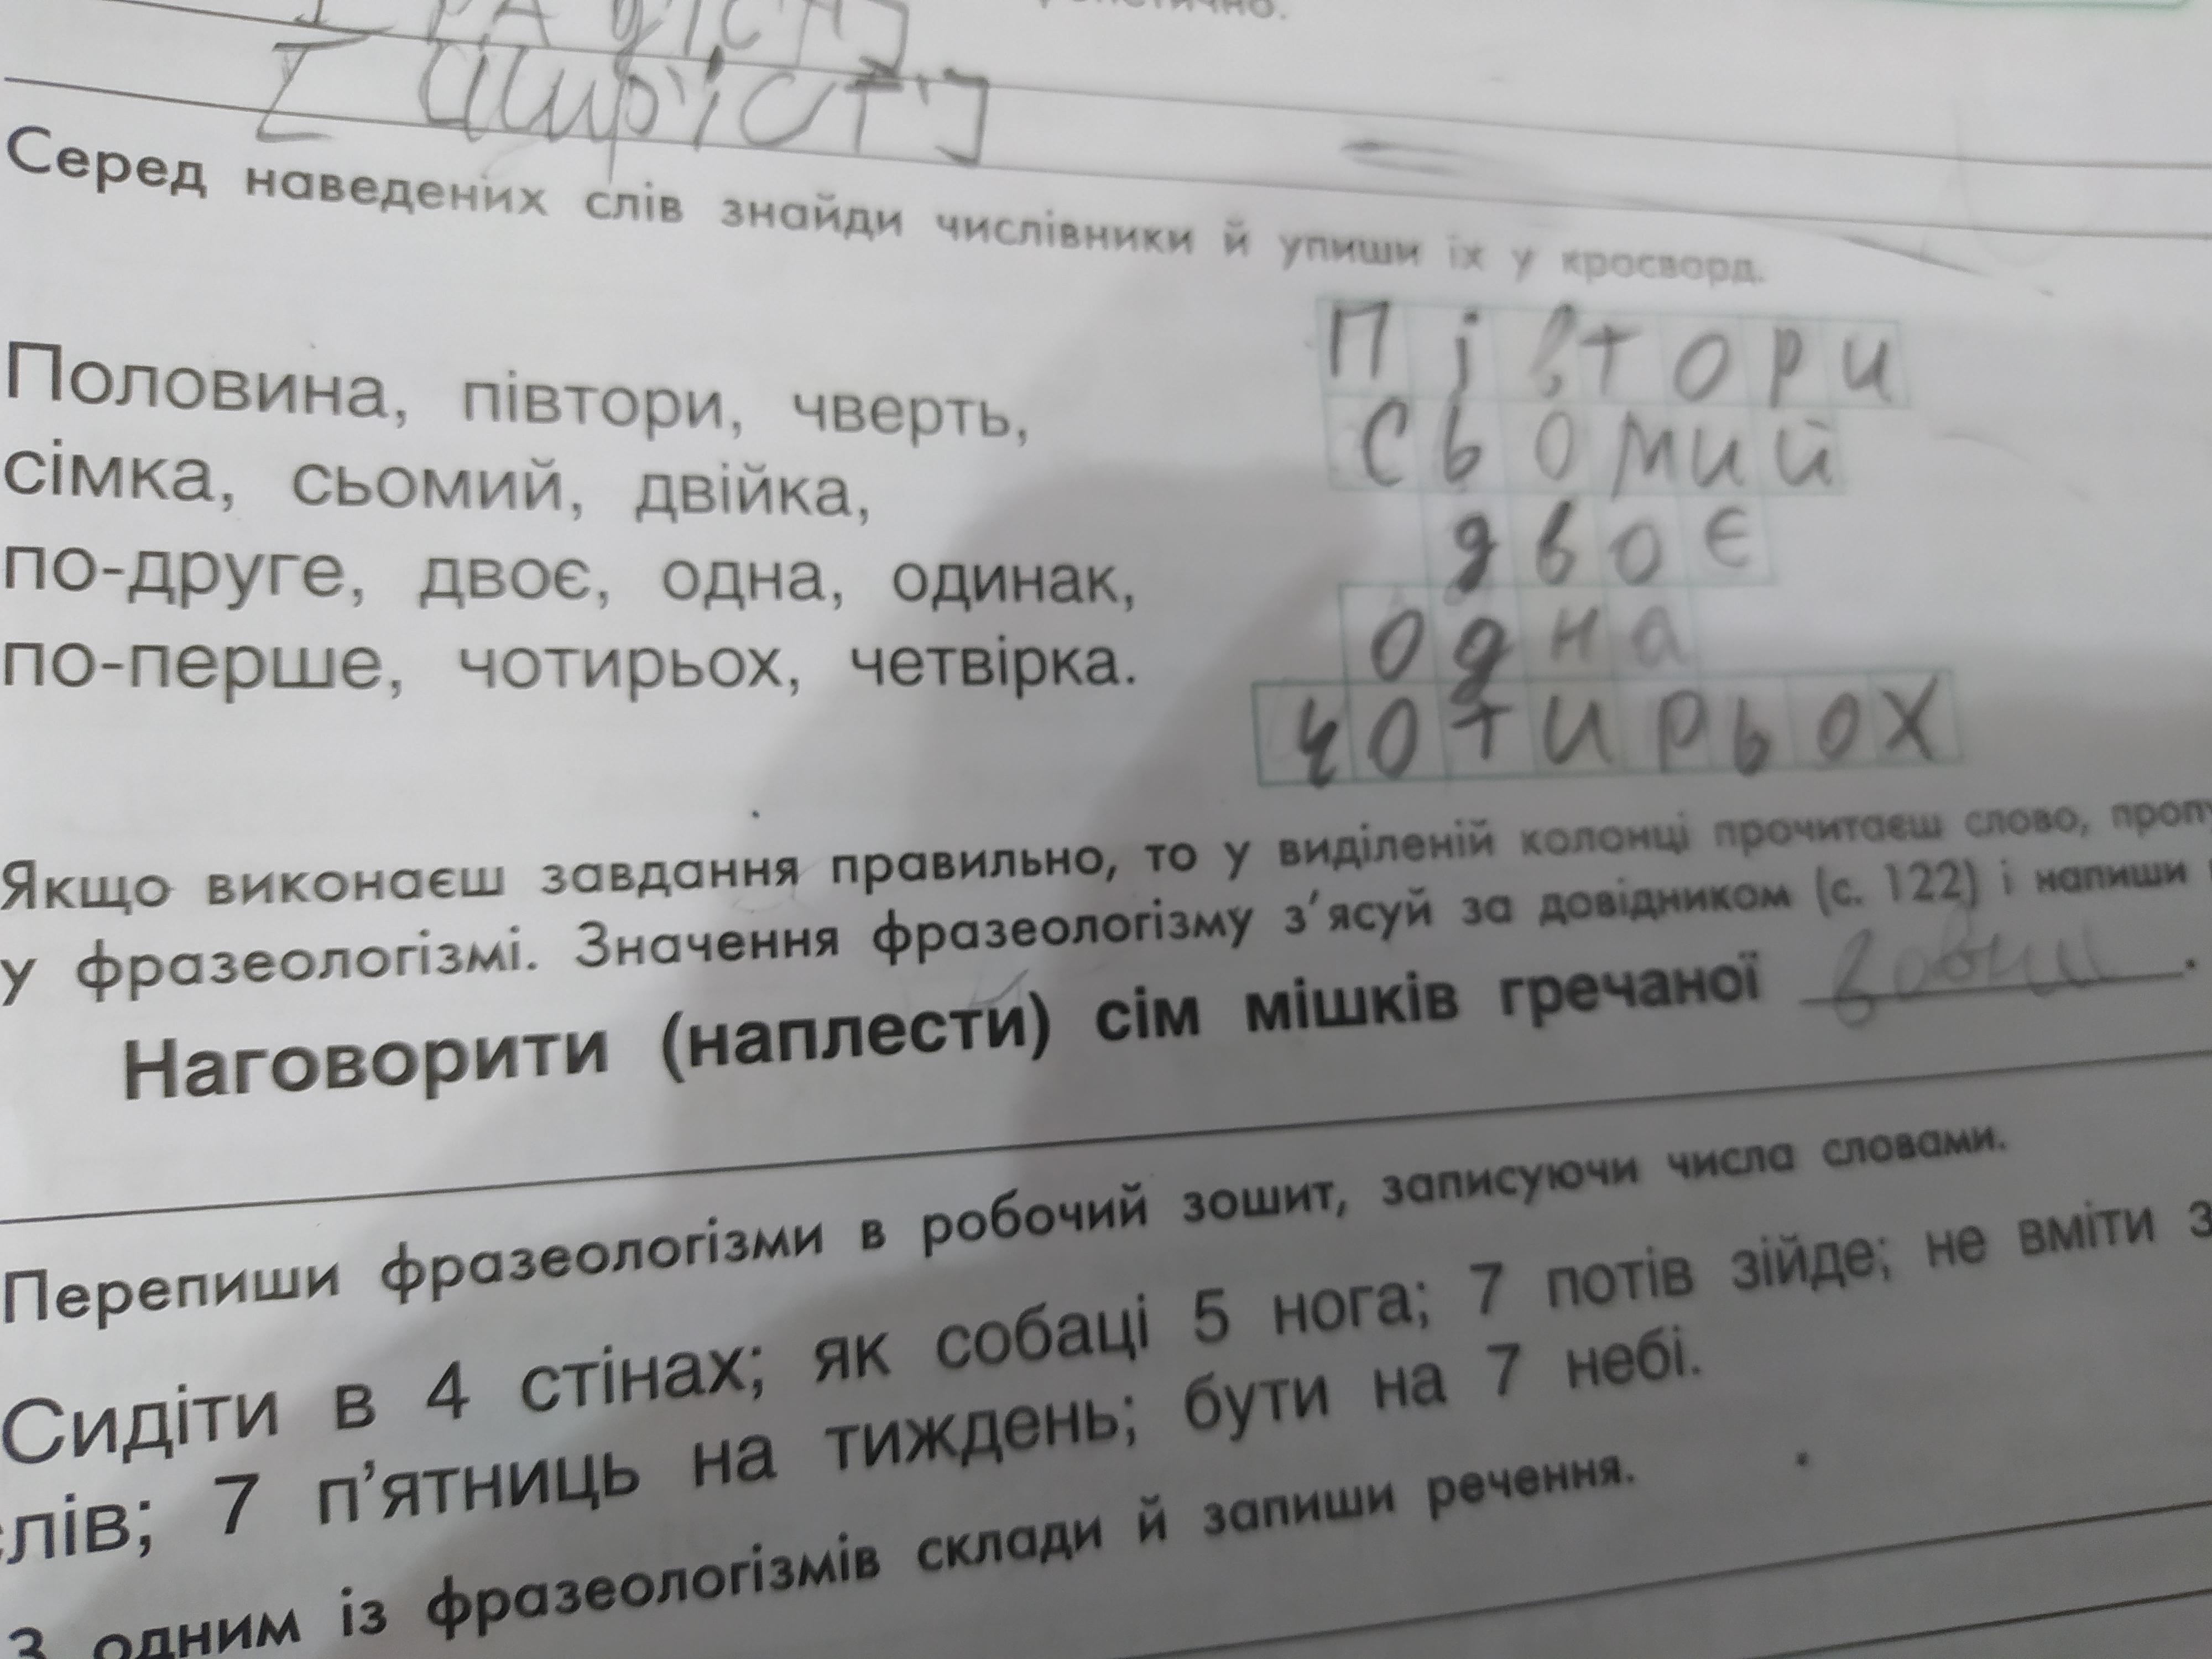 [щир'іст']
Серед наведених слів знайди числівники й упиши їх у кросворд.
Половина, півтори, чверть,
сімка, сьомий, двійка,
по-друге, двоє, одна, одинак,
по-перше, чотирьох, четвірка.
Півтори
сьомий
двоє
одна
чотирьох
Якщо виконаєш завдання правильно, то у виділеній колонці прочитаєш слово,
у фразеологізмі. Значення фразеологізму з’ясуй за довідником (с. 122) і напиши
Наговорити (наплести) сім мішків гречаної .
Перепиши фразеологізми в робочий зошит, записуючи числа словами.
Сидіти в 4 стінах; як собаці 5 нога; 7 потів зійде; не вміти
7 п’ятниць на тиждень; бути на 7 небі.
З одним із фразеологізмів склади й запиши речення.